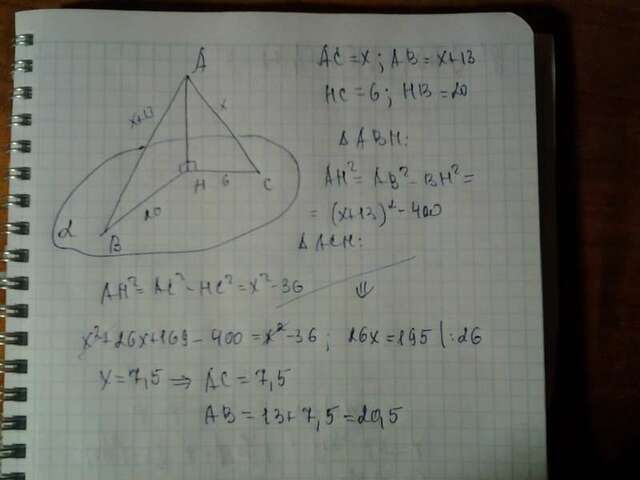 A
x+13
x
H
6
C
20
α
B
AC = x ; AB = x+13
HC = 6 ; HB = 20
Δ ABH:
AH² = AB² - BH² =
= (x+13)² - 400
Δ ACH:
AH² = AC² - HC² = x² - 36
⇓
x² + 26x + 169 - 400 = x² - 36 ; 26x = 195 | : 26
x = 7,5 ⇒ AC = 7,5
AB = 13 + 7,5 = 20,5